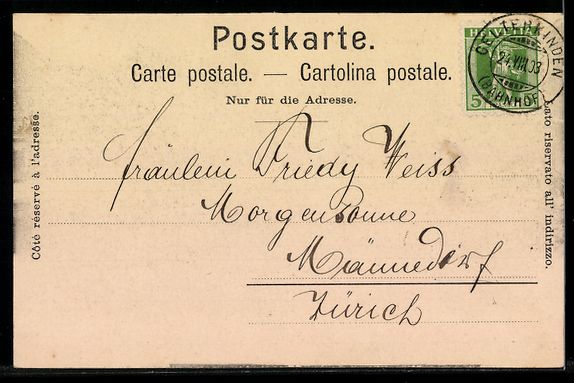 Postkarte.
Carte postale. — Cartolina postale.
Nur für die Adresse.
HELVETIA
5
GELTERKINDEN
24.VIII.03
(BAHNHOF)
Côté réservé à l'adresse.
Lato riservato all' indirizzo.
Fräulein Friedy Weiss
Morgensonne
Männedorf
Zürich